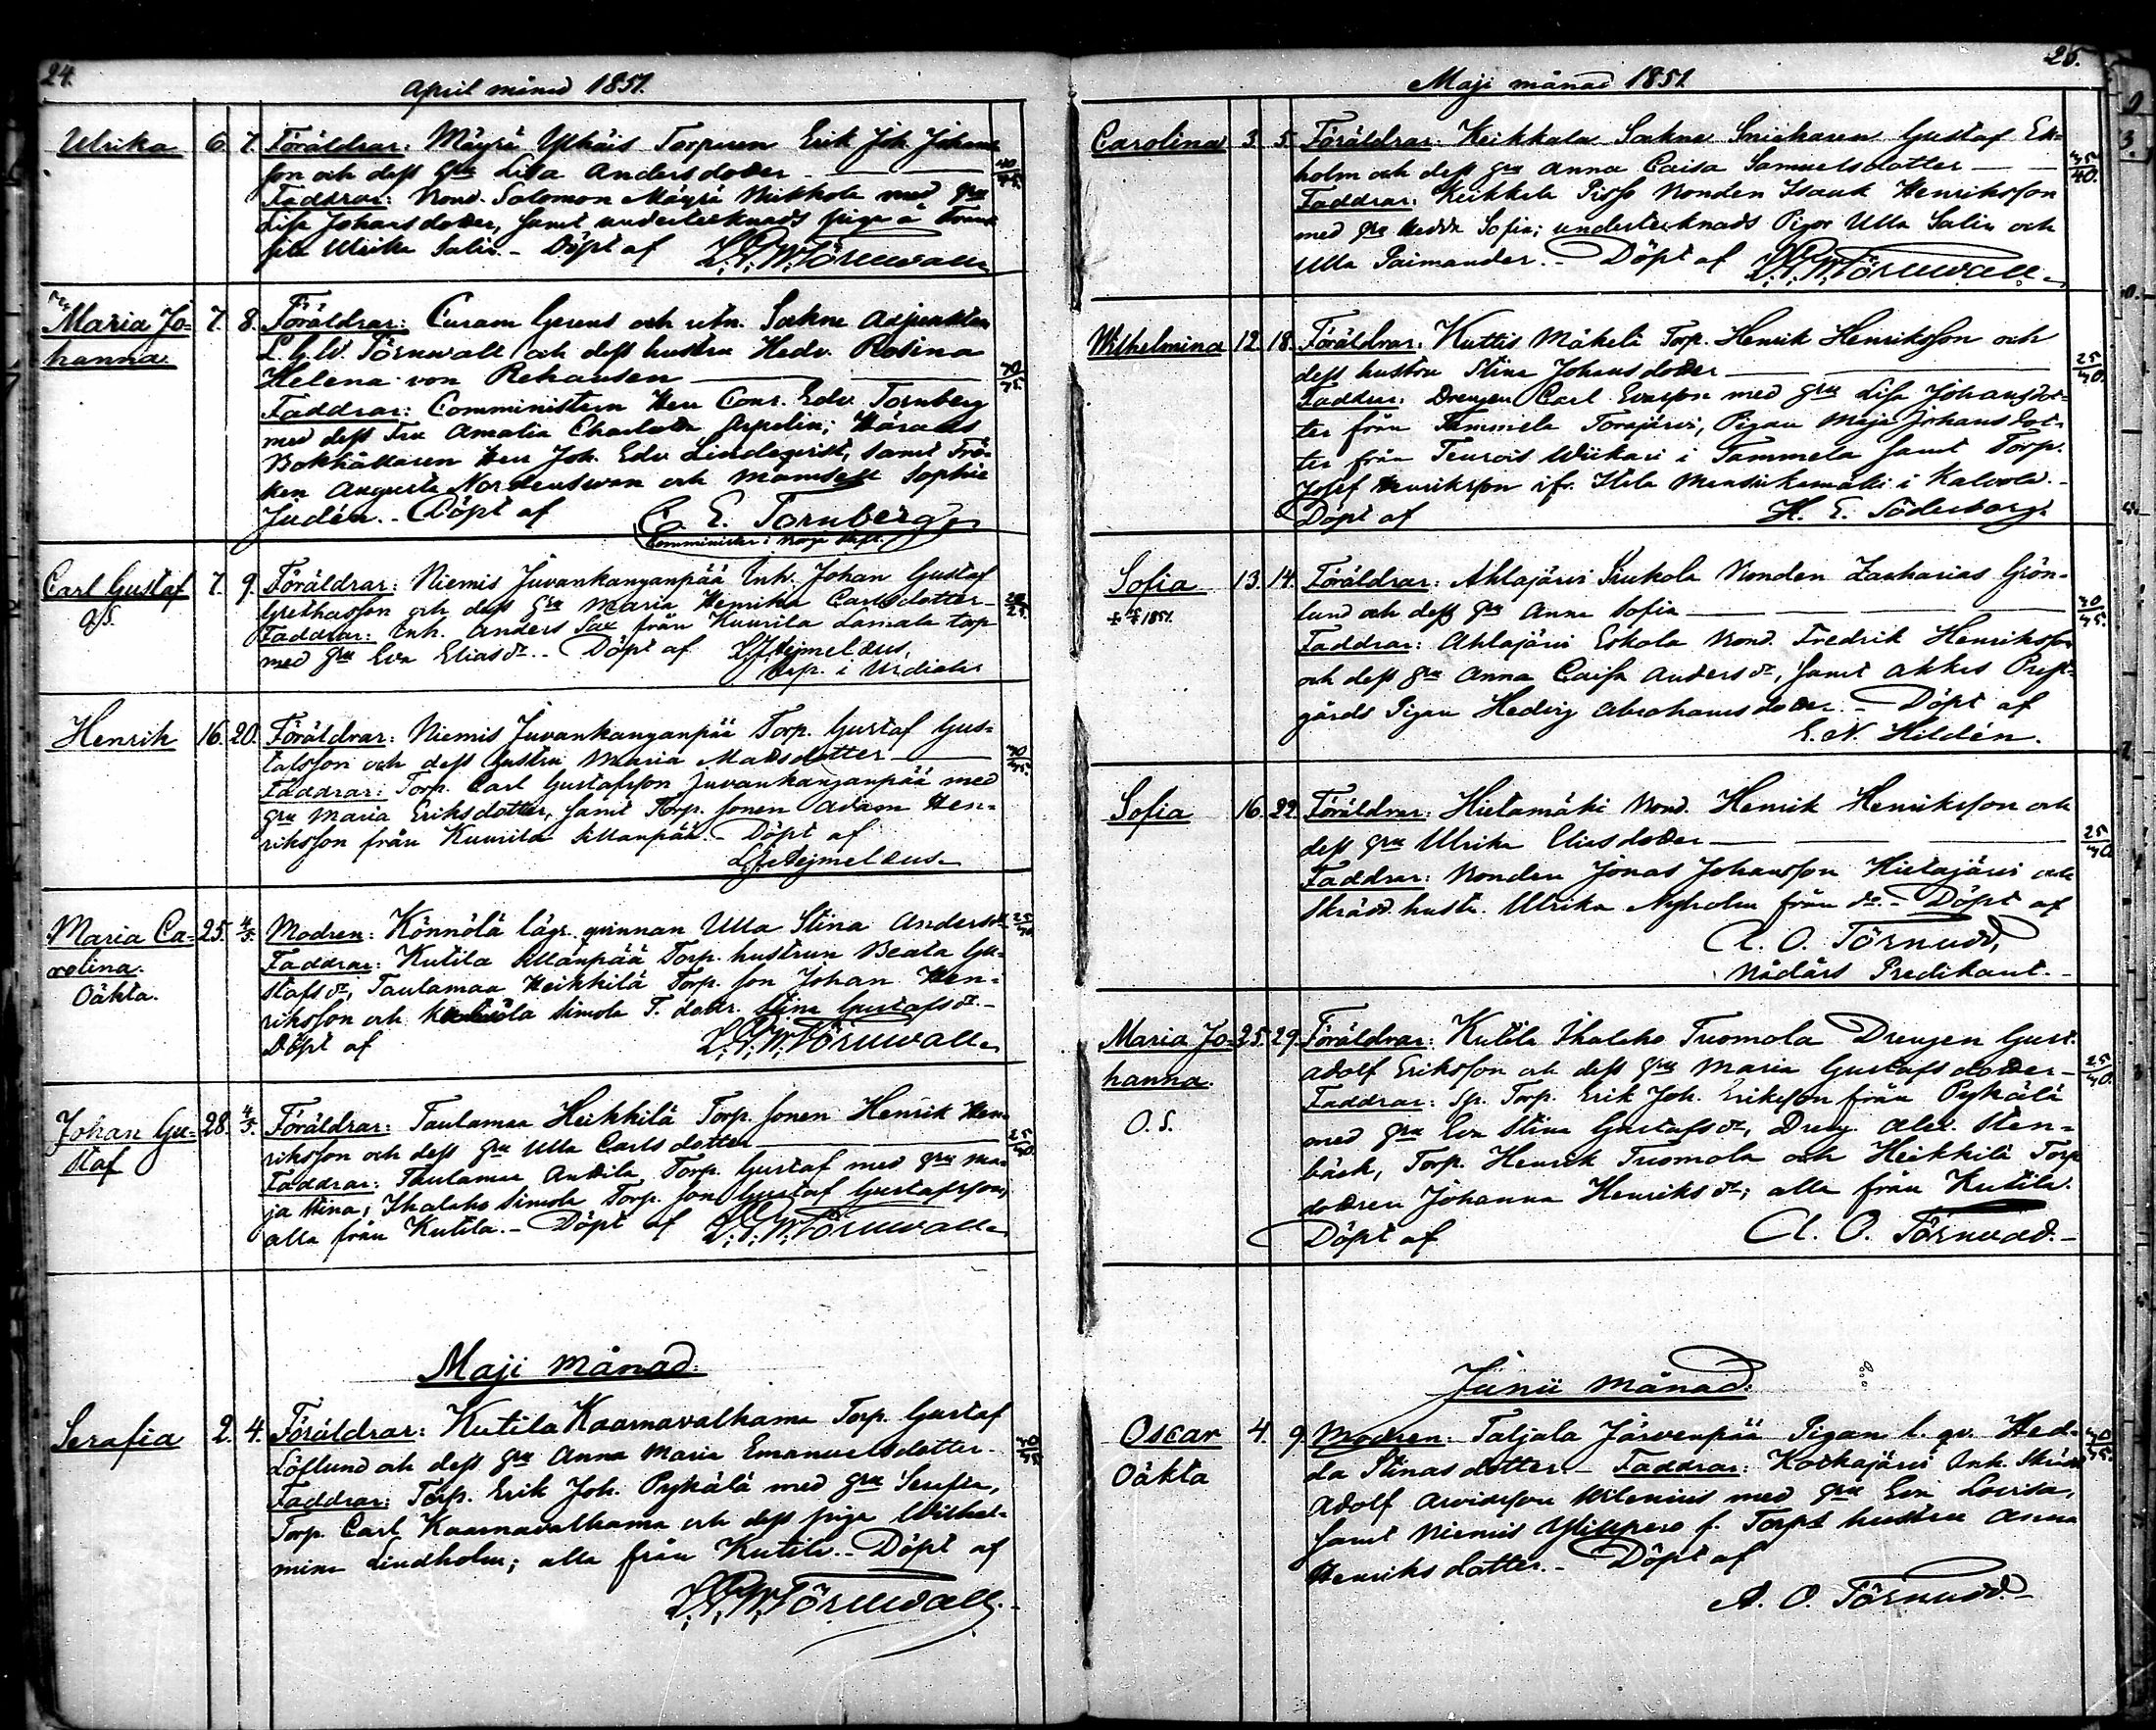 24.
April månad 1851.
Ulrika 6. 7. Föräldrar: Mäyrä Ylhäis Torparen Erik Joh. Johans
son och dess hru Lisa Andersdotter 40/45.
Faddrar: Bond. Salomon Mäyrä med hru
Lisa Johansdotter, samt undertecknads piga
Ulrika Salin. - Döpt af L. G. W. Törnwall
Maria Jo- 7. 8. Föräldrar: Curam Gerens och utn. Sockne Adjunkten
hanna. L. G. W. Törnwall och dess hustru Hedv. Rosina
Helena von Rehausen 30/35
Faddrar: Comministern Herr Conr. Edv. Tornberg
med dess Fru Amalia Charlotta Arpelin; Härads
Bokhållaren Herr Joh. Edv. Lindeqvist, samt Frö-
ken Augusta Nordenswan och Mamsell Sophie
Judén. - Döpt af C. E. Tornberg
Comminister i
Carl Gustaf 7. 9. Föräldrar: Niemis Juvankanganpää Inh. Johan Gustaf
Grelsson och dess hru Maria Henrika Carlsdotter
Faddrar: Inh. Anders Sax från Kuurila Lamala torp
med hru Eva Eliasdr. - Döpt af Heimelæus,
Henrik 16. 20. Föräldrar: Niemis Juvankanganpää Torp. Gustaf Gus-
tafsson och dess hustru Maria Matsdotter 30/35.
Faddrar: Torp. Carl Gustafsson Juvankanganpää med
hru Maria Eriksdotter, samt Torp. sonen Adam Hen-
riksson från Kuurila Sillanpää. - Döpt af
Heimelæus.
Maria Ca- 25. 4/5. Modren: Könnölä lägr. qvinnan Ulla Stina Andersdr. 25/30
rolina. Faddrar: Kutila Sillanpää Torp. hustrun Beata Gu-
Oäkta. stafsdr, Tautamaa Heikkilä Torp. son Johan Hen-
riksson och Simola T. dottr. Stina Gustafsdr. -
Döpt af L. G. W. Törnwall
Johan Gu- 28. 4/5. Föräldrar: Tautamaa Heikkilä Torp. sonen Henrik Hen-
staf riksson och dess hru Ulla Carlsdotter 25/30.
Faddrar: Tautamaa Anttila Torp. Gustaf med hru Ma-
ja Stina; Ihalaho Simola Torp. son Gustaf Gustafsson,
alla från Kutila. - Döpt af L. G. W. Törnwall
Maji månad.
Serafia 2. 4. Föräldrar: Kutila Kaarnavalkama Torp. Gustaf
Löflund och dess hru Anna Maria Emanuelsdotter. 30/35
Faddrar: Torp. Erik Joh. Pykälä med hru Serafia,
Torp. Carl Kaarnavalkama och dess piga Wilhel-
mina Lindholm; alla från Kutila. - Döpt af
L. G. W. Törnwall.
25.
Maji månad 1851.
Carolina 3. 5. Föräldrar: Keikkala Sockne Snickaren Gustaf Ek-
holm och dess hru Anna Caisa Samuelsdotter 35/40.
Faddrar: Keikkala Bonden Isaak Henriksson
med hru Hedda Sofia; undertecknads Pigor Ulla Salin och
Ulla Paimander. - Döpt af L. G. W. Törnwall
Wilhelmina 12. 18. Föräldrar: Kuttis Mäkelä Torp. Henrik Henriksson och
dess hustru Stina Johansdotter 25/30.
Faddrar: Drengen Carl Evasson med hru Lisa Johansdot-
ter från Tammela Torajärvi, Pigan Maja Johansdot-
ter från Teuros Wickari i Tammela samt Torp.
Josef Henriksson ifr. Mansikamäki i Kalvola. -
Döpt af H. E. Söderborg.
Sofia 13. 14. Föräldrar: Ahlajärvi Kukola Bonden Zacharias Grön-
1851. lund och dess hru Anna Sofia 30/35.
Faddrar: Ahlajärvi Eskola Bond. Fredrik Henriksson
och dess hru Anna Caisa Andersdr, samt Akkas Prest-
gårds Pigan Hedvig Abrahamsdotter. - Döpt af
E. N. Hildén.
Sofia 16. 22. Föräldrar: Hietamäki Bond. Henrik Henriksson och
dess hru Ulrika Eliasdotter 25/30
Faddrar: Bonden Jonas Johansson Hietajärvi och
Skrädd. hustr. Ulrika Nyholm från do. - Döpt af
A. O. Törnudd,
Nådårs Predikant. -
Maria Jo- 25. 29. Föräldrar: Kutila Ihalaho Tuomola Drengen Gust.
hanna. Adolf Eriksson och dess hru Maria Gustafsdotter - 25/30.
O. S. Faddrar: Sp. Torp. Erik Joh. Eriksson från Pykälä
med hru Eva Stina Gustafsdr, Dreng. Alex. Sten-
bäck, Torp. Henrik Tuomola och Heikkilä Torp
dottren Johanna Henriksdr; alla från Kutila.
Döpt af A. O. Törnudd. -
Junii månad.
Oscar 4. 9. Modren: Taljala Järvenpää Pigan l. qv. Hed-
Oäkta da Stinasdotter. - Faddrar: Kotkajärvi Inh. Skrädd
Adolf Arvidsson Wilenius med hru Eva Lovisa,
samt Niemis f. Torps hustru Anna
Henriksdotter. - Döpt af
A. O. Törnudd. -